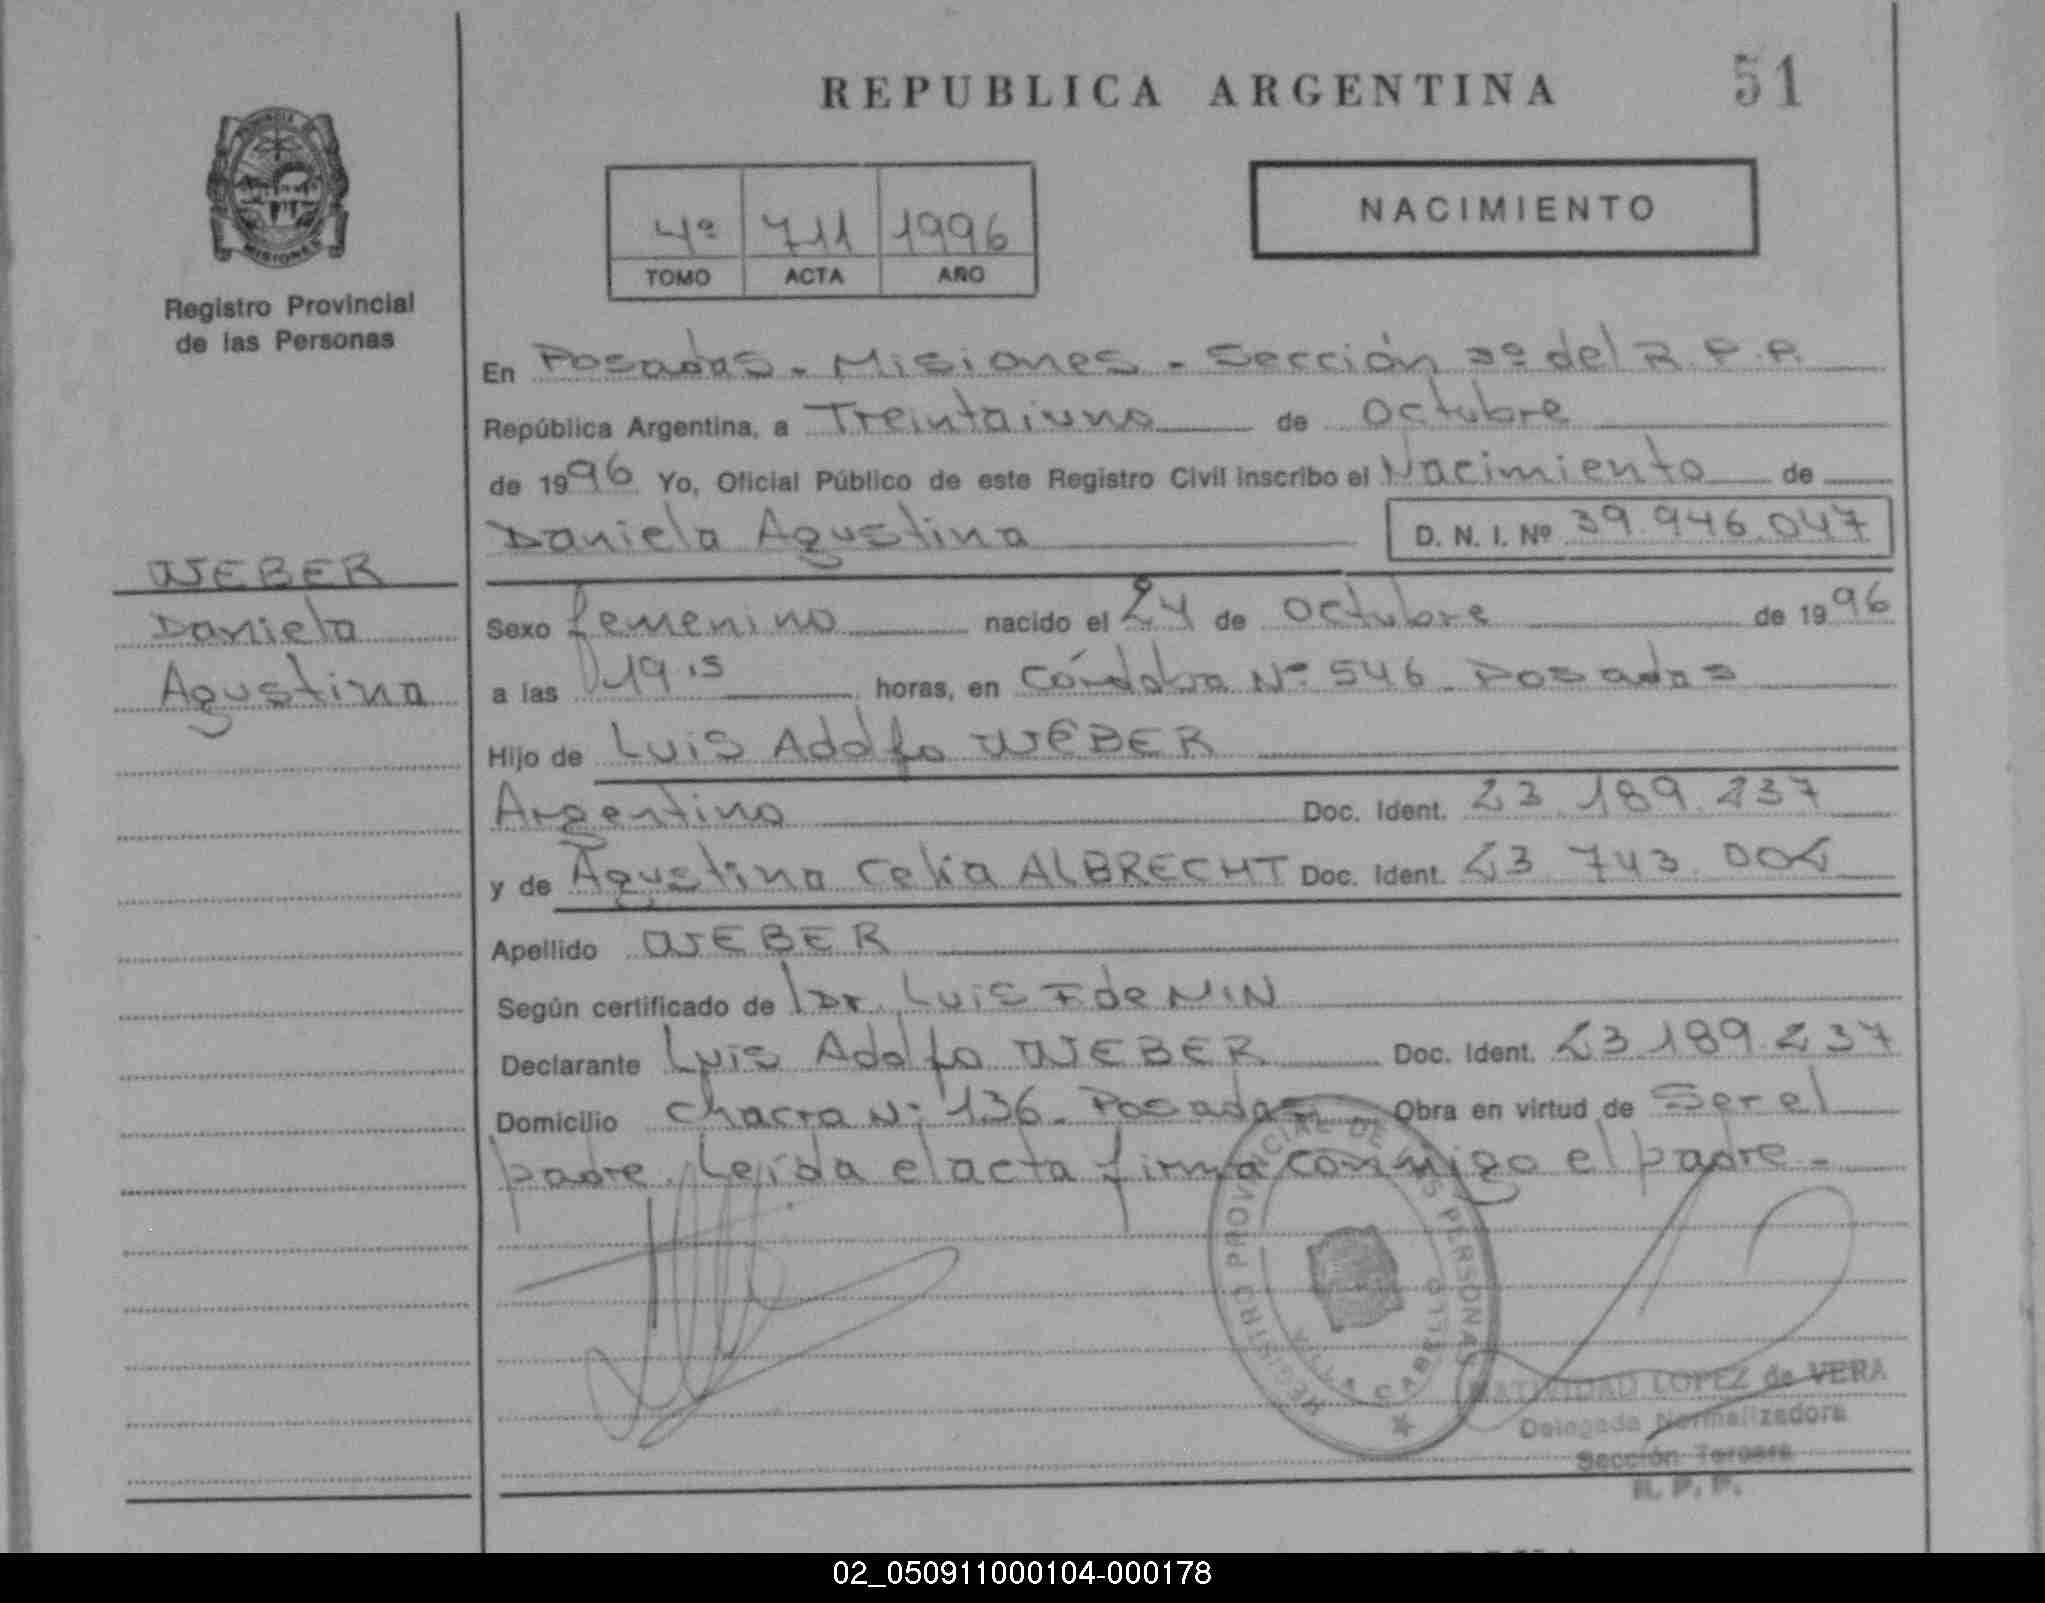 REPUBLICA ARGENTINA
51
PROVINCIA DE
MISIONES
Registro Provincial
de las Personas
4º 711 1996
TOMO ACTA AÑO
NACIMIENTO
En Posadas - Misiones - Sección 3º del R.P.P.
República Argentina, a Treintaiuno de Octubre
de 1996 Yo, Oficial Público de este Registro Civil inscribo el Nacimiento de
Daniela Agustina D. N. I. Nº 39.946.047
WEBER
Daniela
Agustina
Sexo femenino nacido el 24 de Octubre de 1996
a las 19,15 horas, en Córdoba Nº 546 Posadas
Hijo de Luis Adolfo WEBER
Argentino Doc. Ident. 23.189.237
y de Agustina Celia ALBRECHT Doc. Ident. 23.743.002
Apellido WEBER
Según certificado de Dr. Luis F de NIN
Declarante Luis Adolfo WEBER Doc. Ident. 23.189.237
Domicilio Chacra Nº 136 - Posadas Obra en virtud de Ser el
padre. Leída el acta firma conmigo el padre -
REGISTRO PROVINCIAL DE LAS PERSONAS
VILLA CABELLO
NATIVIDAD LOPEZ de VERA
Delegada Normalizadora
Sección Tercera
R. P. P.
02_050911000104-000178